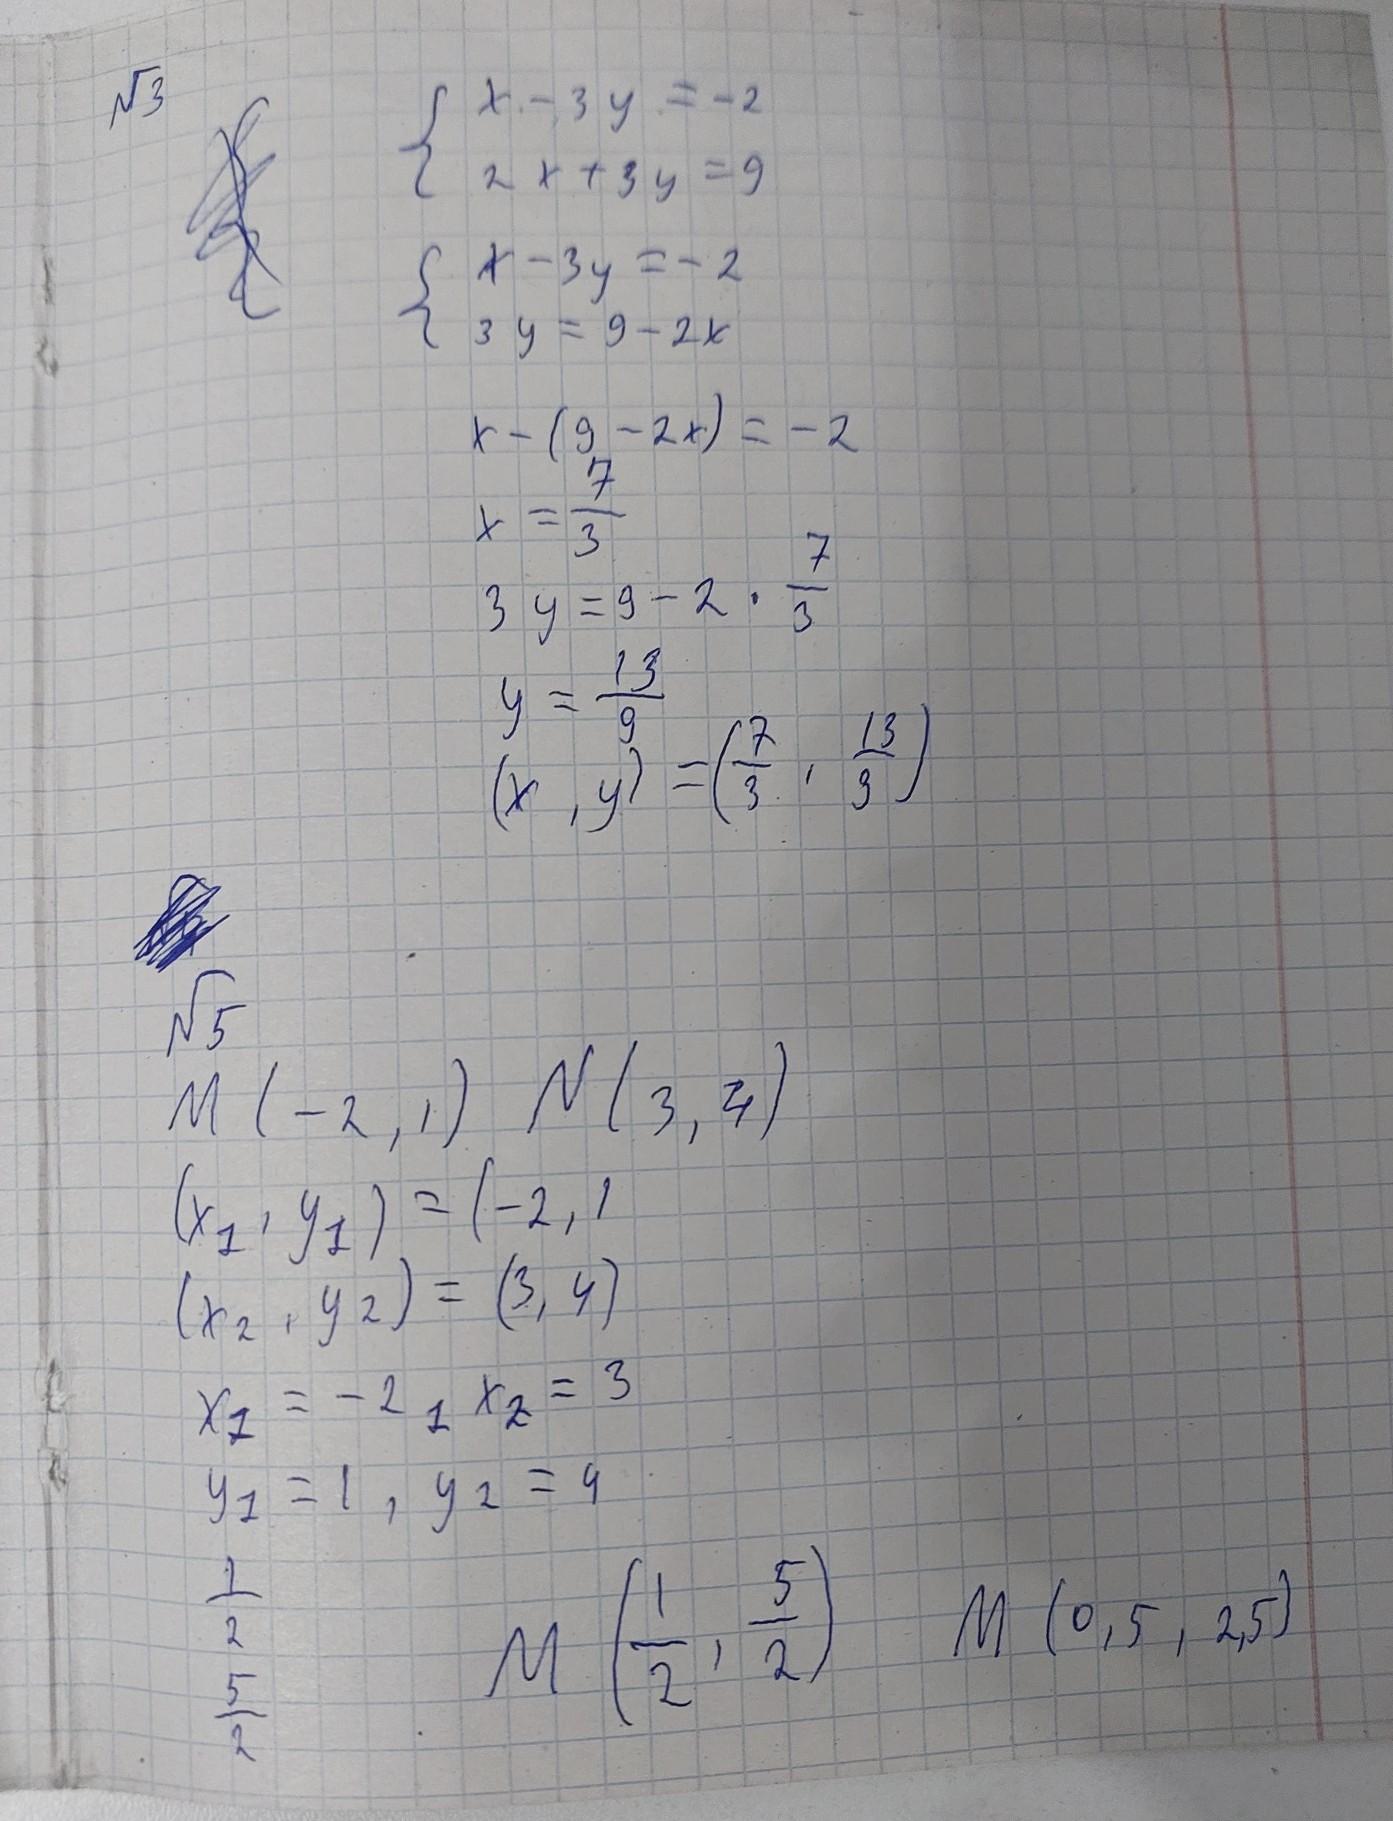 №3
{ x - 3y = -2
2x + 3y = 9
{ x - 3y = -2
3y = 9 - 2x
x - (9 - 2x) = -2
x = 7/3
3y = 9 - 2 · 7/3
y = 13/9
(x, y) = (7/3, 13/9)
№5
M(-2, 1) N(3, 4)
(x1, y1) = (-2, 1
(x2, y2) = (3, 4)
x1 = -2, x2 = 3
y1 = 1, y2 = 4
1/2
5/2
M(1/2, 5/2) M(0,5, 2,5)